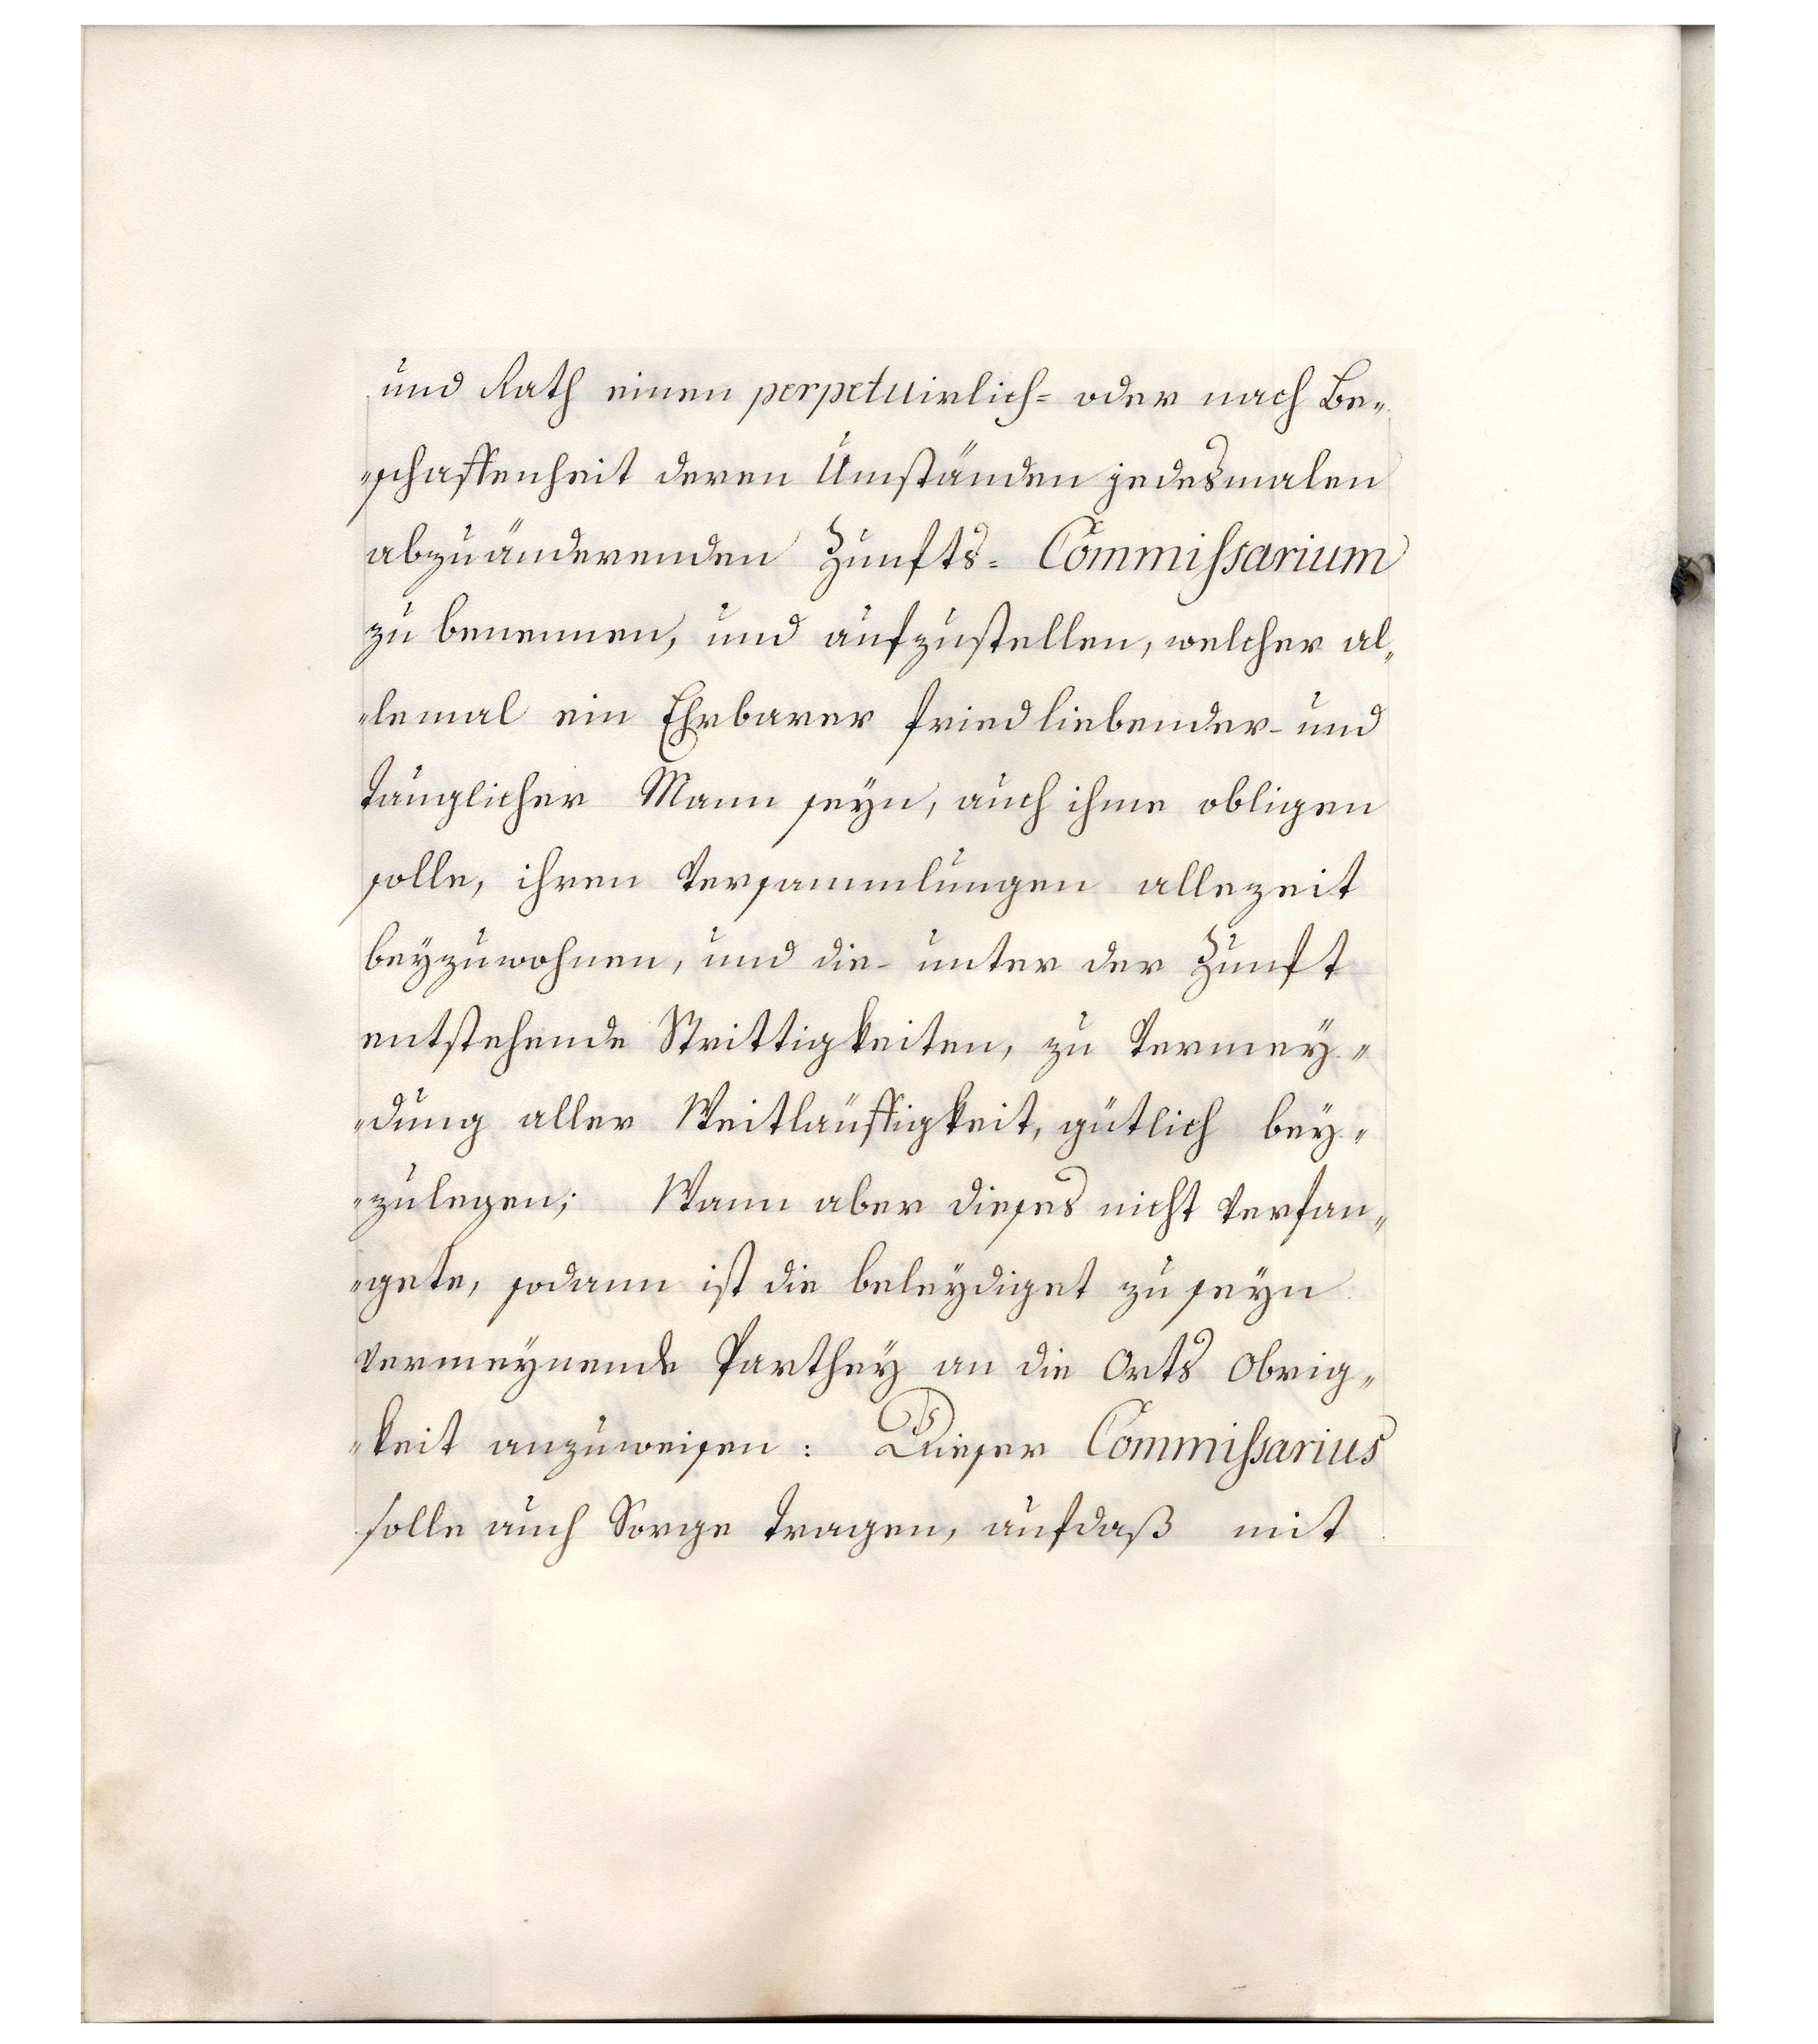 und Rath einen perpetuirlich= oder nach Be„
„schaffenheit deren Umständen jedesmalen
abzuänderenden Zunfts= Commißarium
zu benennen, und aufzustellen, welcher al„
„lemal ein Ehrbarer friedliebender- und
tauglicher Mann seyn, auch ihme obligen
solle, ihren Versammlungen allezeit
beyzuwohnen, und die- unter der Zunft
entstehende Strittigkeiten, zu Vermey„
„dung aller Weitläuffigkeit, gütlich bey„
„zulegen; Wann aber dieses nicht verfan„
„gete, sodann ist die beleydiget zu seyn
vermeynende Parthey an die Orts Obrig„
„keit anzuweisen: Dieser Commißarius
solle auch Sorge tragen, aufdaß mit